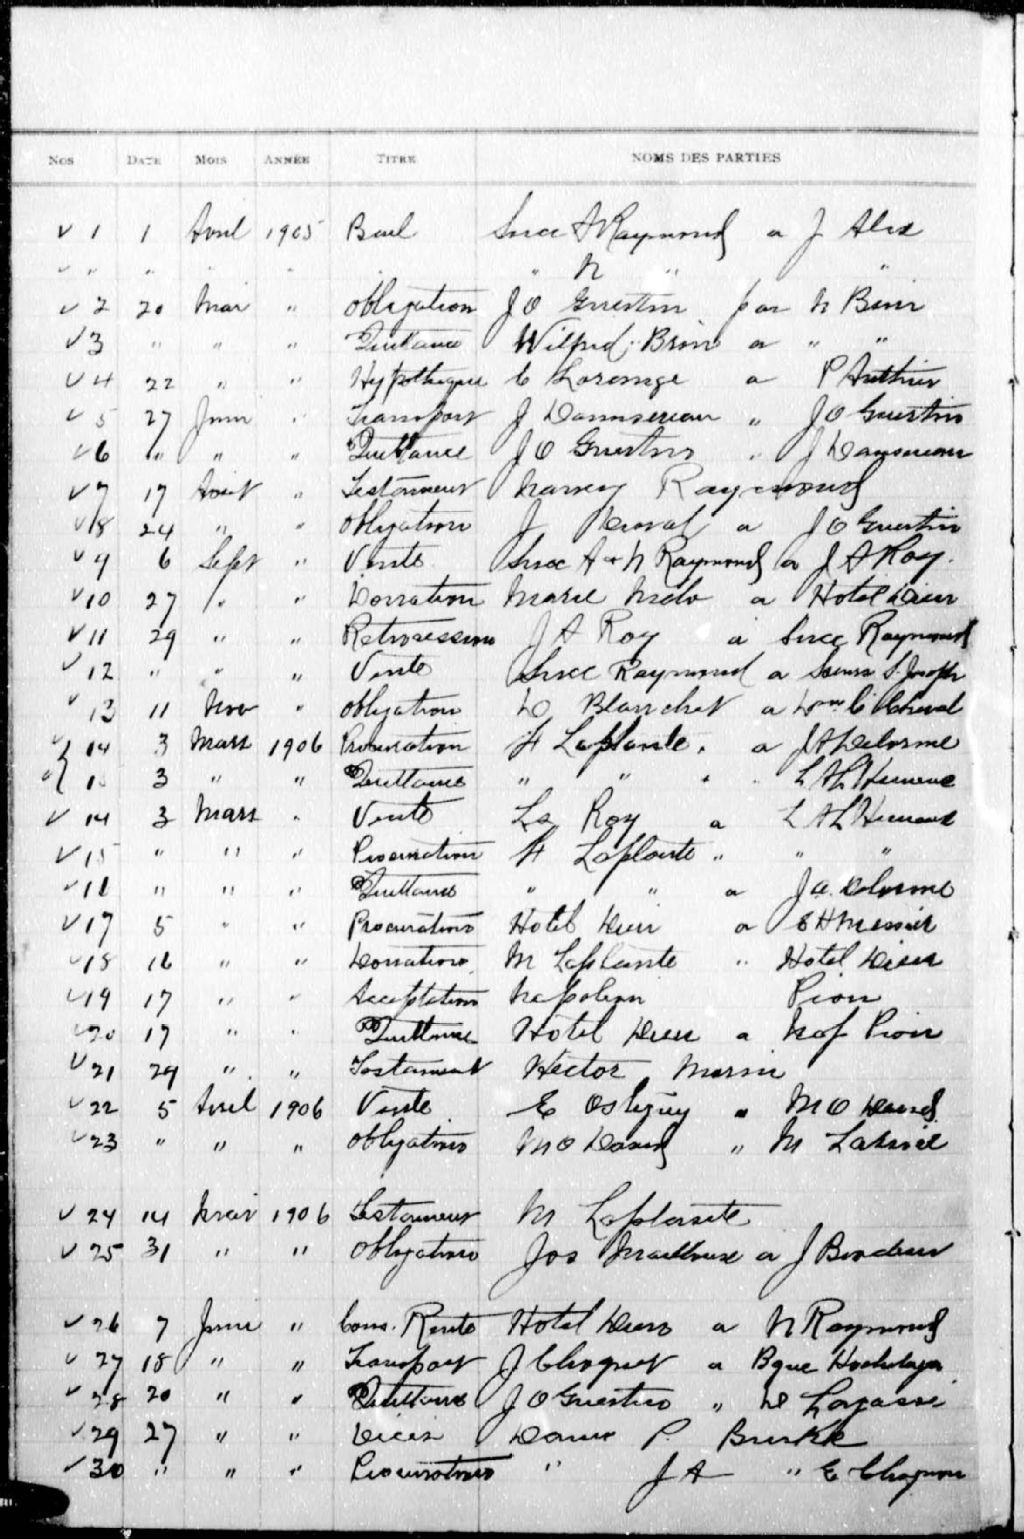 Nos Date Mois Année Titre NOMS DES PARTIES
√ 1 1 Avril 1905 Bail Succ A Raymond a J Alix
" " " " " " N " "
√ 2 20 Mai " Obligation J O Guertin par N Brin
√ 3 " " " Quittance Wilfrid Brin a " "
√ 4 22 " " Hypotheque C Larange a P Authier
√ 5 27 Juin " Transport J Dansereau " J O Guertin
√ 6 " " " Quittance J O Guertin " J Dansereau
√ 7 17 Aout " Testament Nancy Raymond
√ 8 24 " " Obligation J a J O Guertin
√ 9 6 Sept " Vente Succ A & N Raymond a J A Roy
√ 10 27 " " Donation Marie a Hotel Dieu
√ 11 29 " " Retrocession J A Roy a Succ Raymond
√ 12 " " " Vente Succ Raymond a Soeurs S. Joseph
√ 13 11 Nov " Obligation D Blanchet a Dme C
√ 14 3 Mars 1906 Procuration H Laplante a J A Delorme
√ 15 3 " " Quittance " " " L A L'Heureux
√ 14 3 Mars " Vente Ls Roy a L A L'Heureux
√ 15 " " " Procuration H Laplante " " "
√ 16 " " " Quittance " " a J A Delorme
√ 17 5 " " Procuration Hotel Dieu a E H Messier
√ 18 16 " " Donation M Laplante " Hotel Dieu
√ 19 17 " " Acceptation Napoleon Pion
√ 20 17 " " Quittance Hotel Dieu a Nap Pion
√ 21 29 " " Testament Hector Morin
√ 22 5 Avril 1906 Vente E Ostiguy a M O David
√ 23 " " " Obligation M O David " M
√ 24 14 Mai 1906 Testament M Laplante
√ 25 31 " " Obligation Jos Mailhoux a J Bordeur
√ 26 7 Juin " Cons. Rente Hotel Dieu a N Raymond
√ 27 18 " " Transport J Choquet a Bque Hochelaga
√ 28 20 " " Quittance J O Guertin " D Lagassé
√ 29 27 " " Dame P. Burke
√ 30 " " " Procuration " J A " E Chagnon